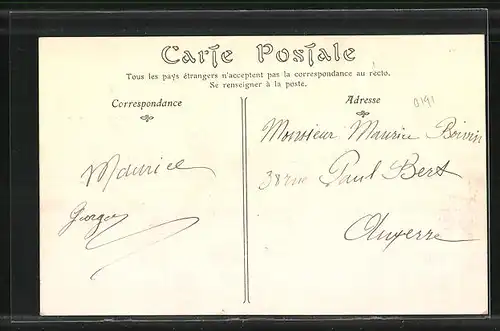 Carte Postale
Tous les pays étrangers n'acceptent pas la correspondance au recto.
Se renseigner à la poste.
Correspondance
Adresse
0191
Monsieur Maurice Boivin
38 rue Paul Bert
Auxerre
Maurice
Georges